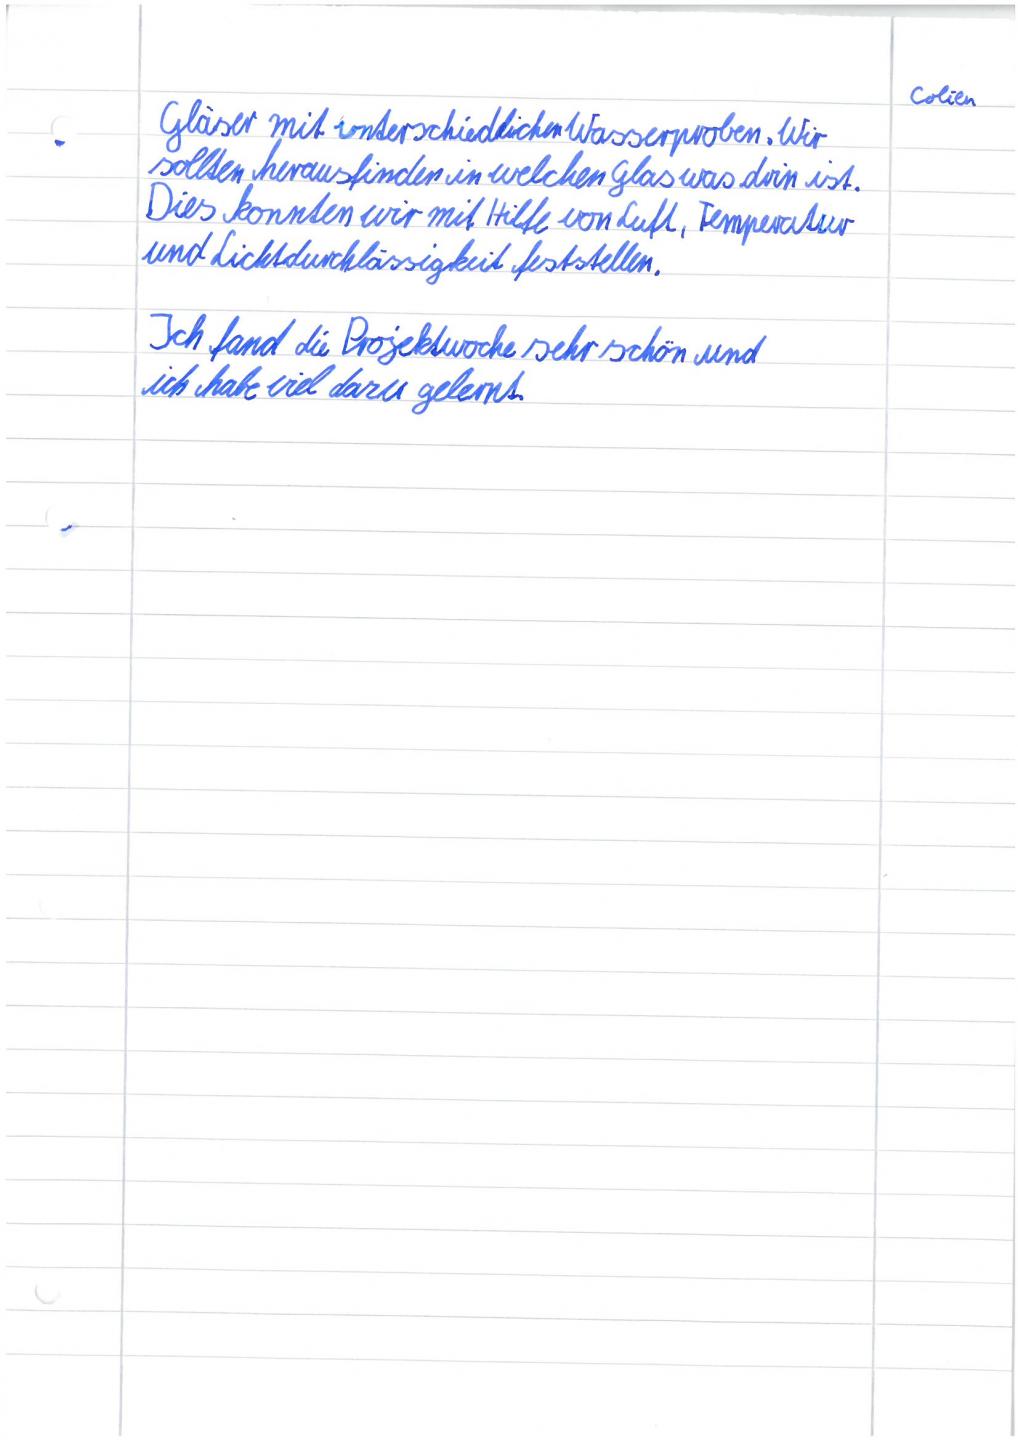 Colien
Gläser mit unterschiedlichen Wasserproben. Wir
sollten herausfinden in welchen Glas was drin ist.
Dies konnten wir mit Hilfe von Luft, Temperatur
und Lichtdurchlässigkeit feststellen.
Ich fand die Projektwoche sehr schön und
ich habe viel dazu gelernt.